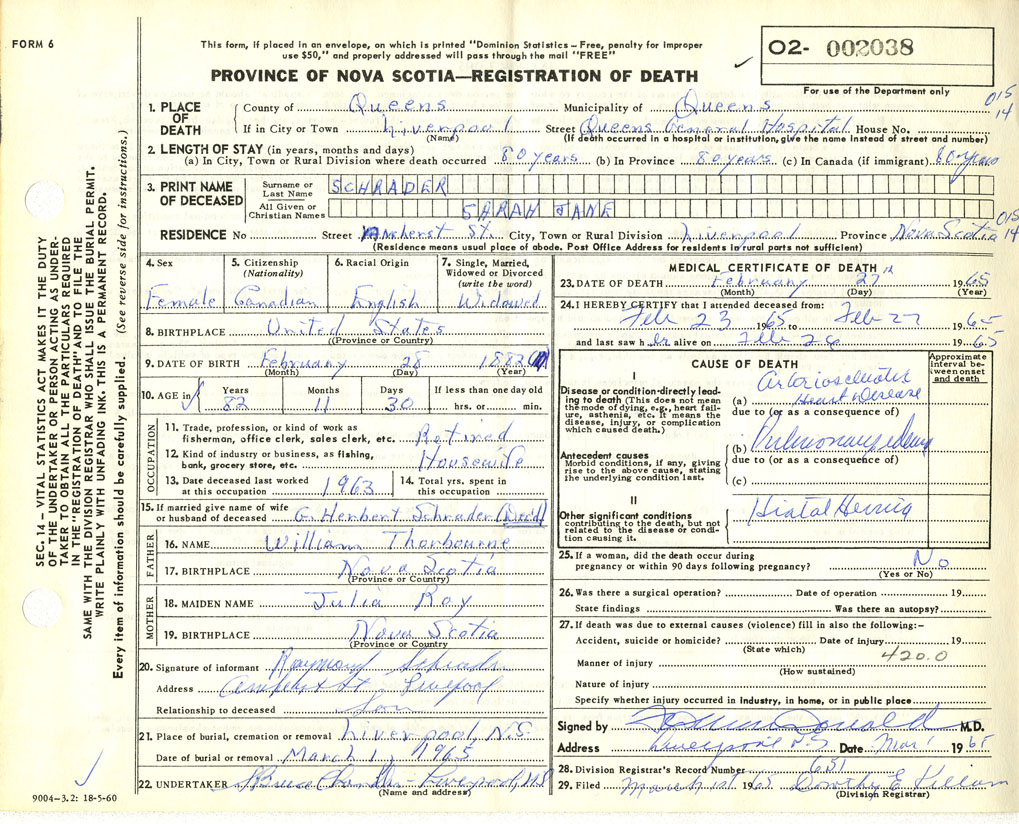 FORM 6
This form, if placed in an envelope, on which is printed "Dominion Statistics – Free, penalty for improper
use $50," and properly addressed will pass through the mail "FREE"
PROVINCE OF NOVA SCOTIA—REGISTRATION OF DEATH
02- 002038
For use of the Department only
015
14
1. PLACE OF DEATH County of Queens Municipality of Queens
If in City or Town Liverpool Street Queens General Hospital House No.
(Name) (If death occurred in a hospital or institution, give the name instead of street and number)
2. LENGTH OF STAY (in years, months and days)
(a) In City, Town or Rural Division where death occurred 80 years (b) In Province 80 years (c) In Canada (if immigrant) 80 years
3. PRINT NAME OF DECEASED Surname or Last Name SCHRADER
All Given or Christian Names SARAH JANE
RESIDENCE No Street Amherst St. City, Town or Rural Division Liverpool Province Nova Scotia
015
14
(Residence means usual place of abode. Post Office Address for residents in rural parts not sufficient)
4. Sex 5. Citizenship (Nationality) 6. Racial Origin 7. Single, Married, Widowed or Divorced (write the word)
Female Canadian English Widowed
8. BIRTHPLACE United States
(Province or Country)
9. DATE OF BIRTH February 28 1882
(Month) (Day) (Year)
10. AGE in Years Months Days If less than one day old
82 11 30 hrs. or min.
OCCUPATION
11. Trade, profession, or kind of work as fisherman, office clerk, sales clerk, etc. Retired
12. Kind of industry or business, as fishing, bank, grocery store, etc. Housewife
13. Date deceased last worked at this occupation 1963 14. Total yrs. spent in this occupation
15. If married give name of wife or husband of deceased G. Herbert Schrader (Dec'd)
FATHER
16. NAME William Thorbourne
17. BIRTHPLACE Nova Scotia
(Province or Country)
MOTHER
18. MAIDEN NAME Julia Roy
19. BIRTHPLACE Nova Scotia
(Province or Country)
20. Signature of informant Raymond Schrader
Address Amherst St. Liverpool
Relationship to deceased Son
21. Place of burial, cremation or removal Liverpool, N.S.
Date of burial or removal March 1, 1965
22. UNDERTAKER Bruce Chandler Liverpool, N.S.
(Name and address)
MEDICAL CERTIFICATE OF DEATH
23. DATE OF DEATH February 27th 1965
(Month) (Day) (Year)
24. I HEREBY CERTIFY that I attended deceased from:
Feb 23 1965 to Feb 27 1965
and last saw her alive on Feb 26 1965
CAUSE OF DEATH
Approximate interval between onset and death
I
Disease or condition directly leading to death (This does not mean the mode of dying, e.g., heart failure, asthenia, etc. It means the disease, injury, or complication which caused death.)
(a) Arteriosclerotic Heart Disease
due to (or as a consequence of)
(b) Pulmonary edema
due to (or as a consequence of)
Antecedent causes
Morbid conditions, if any, giving rise to the above cause, stating the underlying condition last.
(c)
II
Other significant conditions
contributing to the death, but not related to the disease or condition causing it.
Hiatal Hernia
25. If a woman, did the death occur during
pregnancy or within 90 days following pregnancy? No
(Yes or No)
26. Was there a surgical operation? Date of operation 19
State findings Was there an autopsy?
27. If death was due to external causes (violence) fill in also the following:–
Accident, suicide or homicide? Date of injury 19
(State which)
420.0
Manner of injury
(How sustained)
Nature of injury
Specify whether injury occurred in industry, in home, or in public place
Signed by M.D.
Address Liverpool N.S. Date Mar 1 1965
28. Division Registrar's Record Number 651
29. Filed March 1st 1965 Dorothy E. Killam
(Division Registrar)
SEC. 14 – VITAL STATISTICS ACT MAKES IT THE DUTY
OF THE UNDERTAKER OR PERSON ACTING AS UNDER-
TAKER TO OBTAIN ALL THE PARTICULARS REQUIRED
IN THE "REGISTRATION OF DEATH" AND TO FILE THE
SAME WITH THE DIVISION REGISTRAR WHO SHALL ISSUE THE BURIAL PERMIT.
WRITE PLAINLY WITH UNFADING INK. THIS IS A PERMANENT RECORD.
Every item of information should be carefully supplied. (See reverse side for instructions.)
9004–3.2: 18-5-60